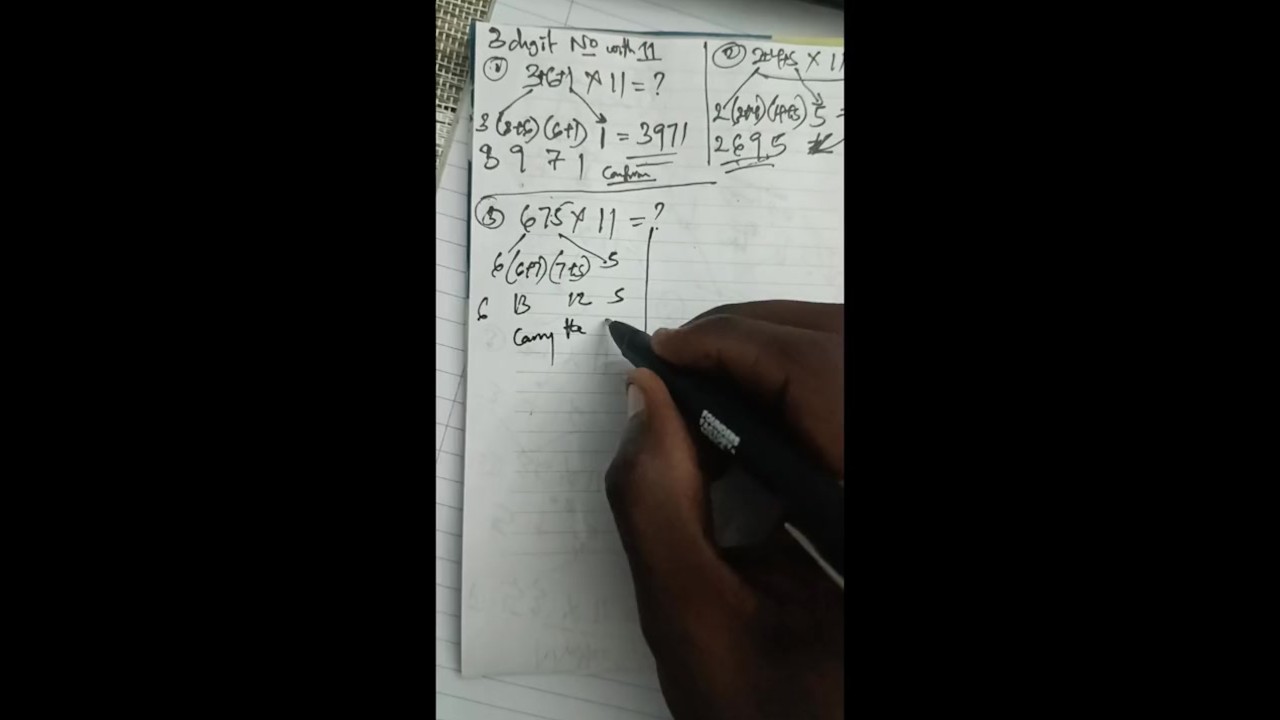 3 digit No with 11
① 3+6+1 × 11 = ?
3 (3+6) (6+1) 1 = 3971
3 9 7 1
Confirm
② 2+4+5 × 11
2 (2+4) (4+5) 5 =
2695
③ 675 × 11 = ?
6 (6+7) (7+5) 5
6 13 12 5
Carry the